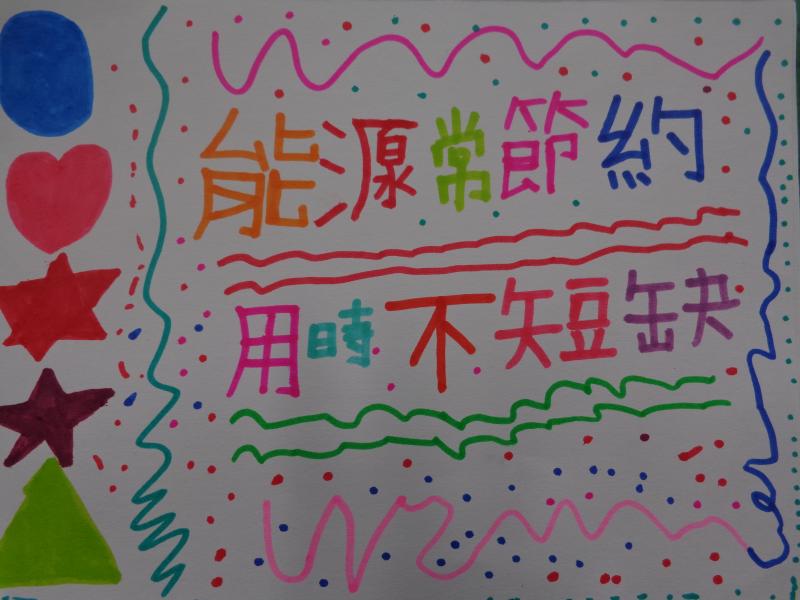 能源常節約
用時不短缺